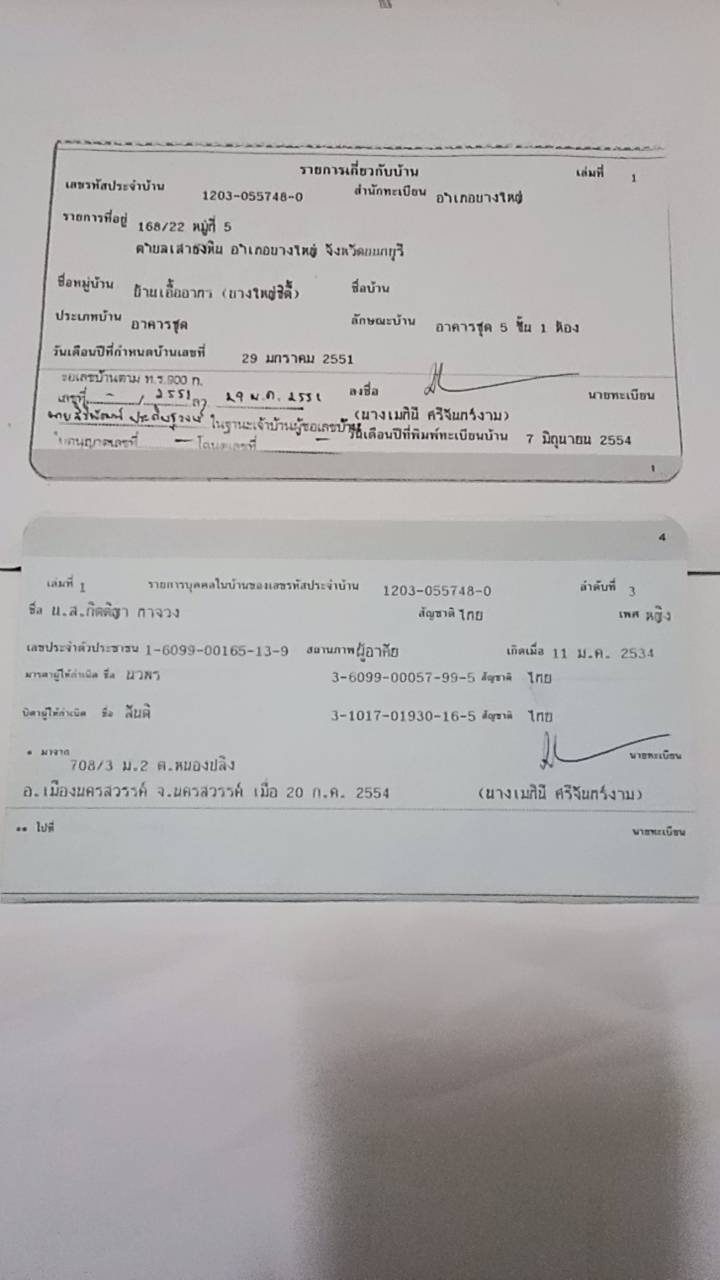 รายการเกี่ยวกับบ้าน เล่มที่ 1
เลขรหัสประจำบ้าน 1203-055748-0 สำนักทะเบียน อำเภอบางใหญ่
รายการที่อยู่ 168/22 หมู่ที่ 5
ตำบลเสาธงหิน อำเภอบางใหญ่ จังหวัดนนทบุรี
ชื่อหมู่บ้าน บ้านเอื้ออาทร (บางใหญ่ซิตี้) ชื่อบ้าน
ประเภทบ้าน อาคารชุด ลักษณะบ้าน อาคารชุด 5 ชั้น 1 ห้อง
วันเดือนปีที่กำหนดบ้านเลขที่ 29 มกราคม 2551
ขอเลขบ้านตาม ท.ร.900 ก. ลงชื่อ นายทะเบียน
เลขที่ - / 2551 ลว 29 ม.ค. 2551 (นางเมทินี ศรีจันทร์งาม)
ในฐานะเจ้าบ้านผู้ขอเลขบ้าน วันเดือนปีที่พิมพ์ทะเบียนบ้าน 7 มิถุนายน 2554
ใบอนุญาตเลขที่ - โฉนดเลขที่ -
1
4
เล่มที่ 1 รายการบุคคลในบ้านของเลขรหัสประจำบ้าน 1203-055748-0 ลำดับที่ 3
ชื่อ น.ส.กิตติฐา กาจวง สัญชาติ ไทย เพศ หญิง
เลขประจำตัวประชาชน 1-6099-00165-13-9 สถานภาพ ผู้อาศัย เกิดเมื่อ 11 ม.ค. 2534
มารดาผู้ให้กำเนิด ชื่อ นวพร 3-6099-00057-99-5 สัญชาติ ไทย
บิดาผู้ให้กำเนิด ชื่อ สันติ 3-1017-01930-16-5 สัญชาติ ไทย
* มาจาก นายทะเบียน
708/3 ม.2 ต.หนองปลิง
อ.เมืองนครสวรรค์ จ.นครสวรรค์ เมื่อ 20 ก.ค. 2554 (นางเมทินี ศรีจันทร์งาม)
** ไปที่ นายทะเบียน